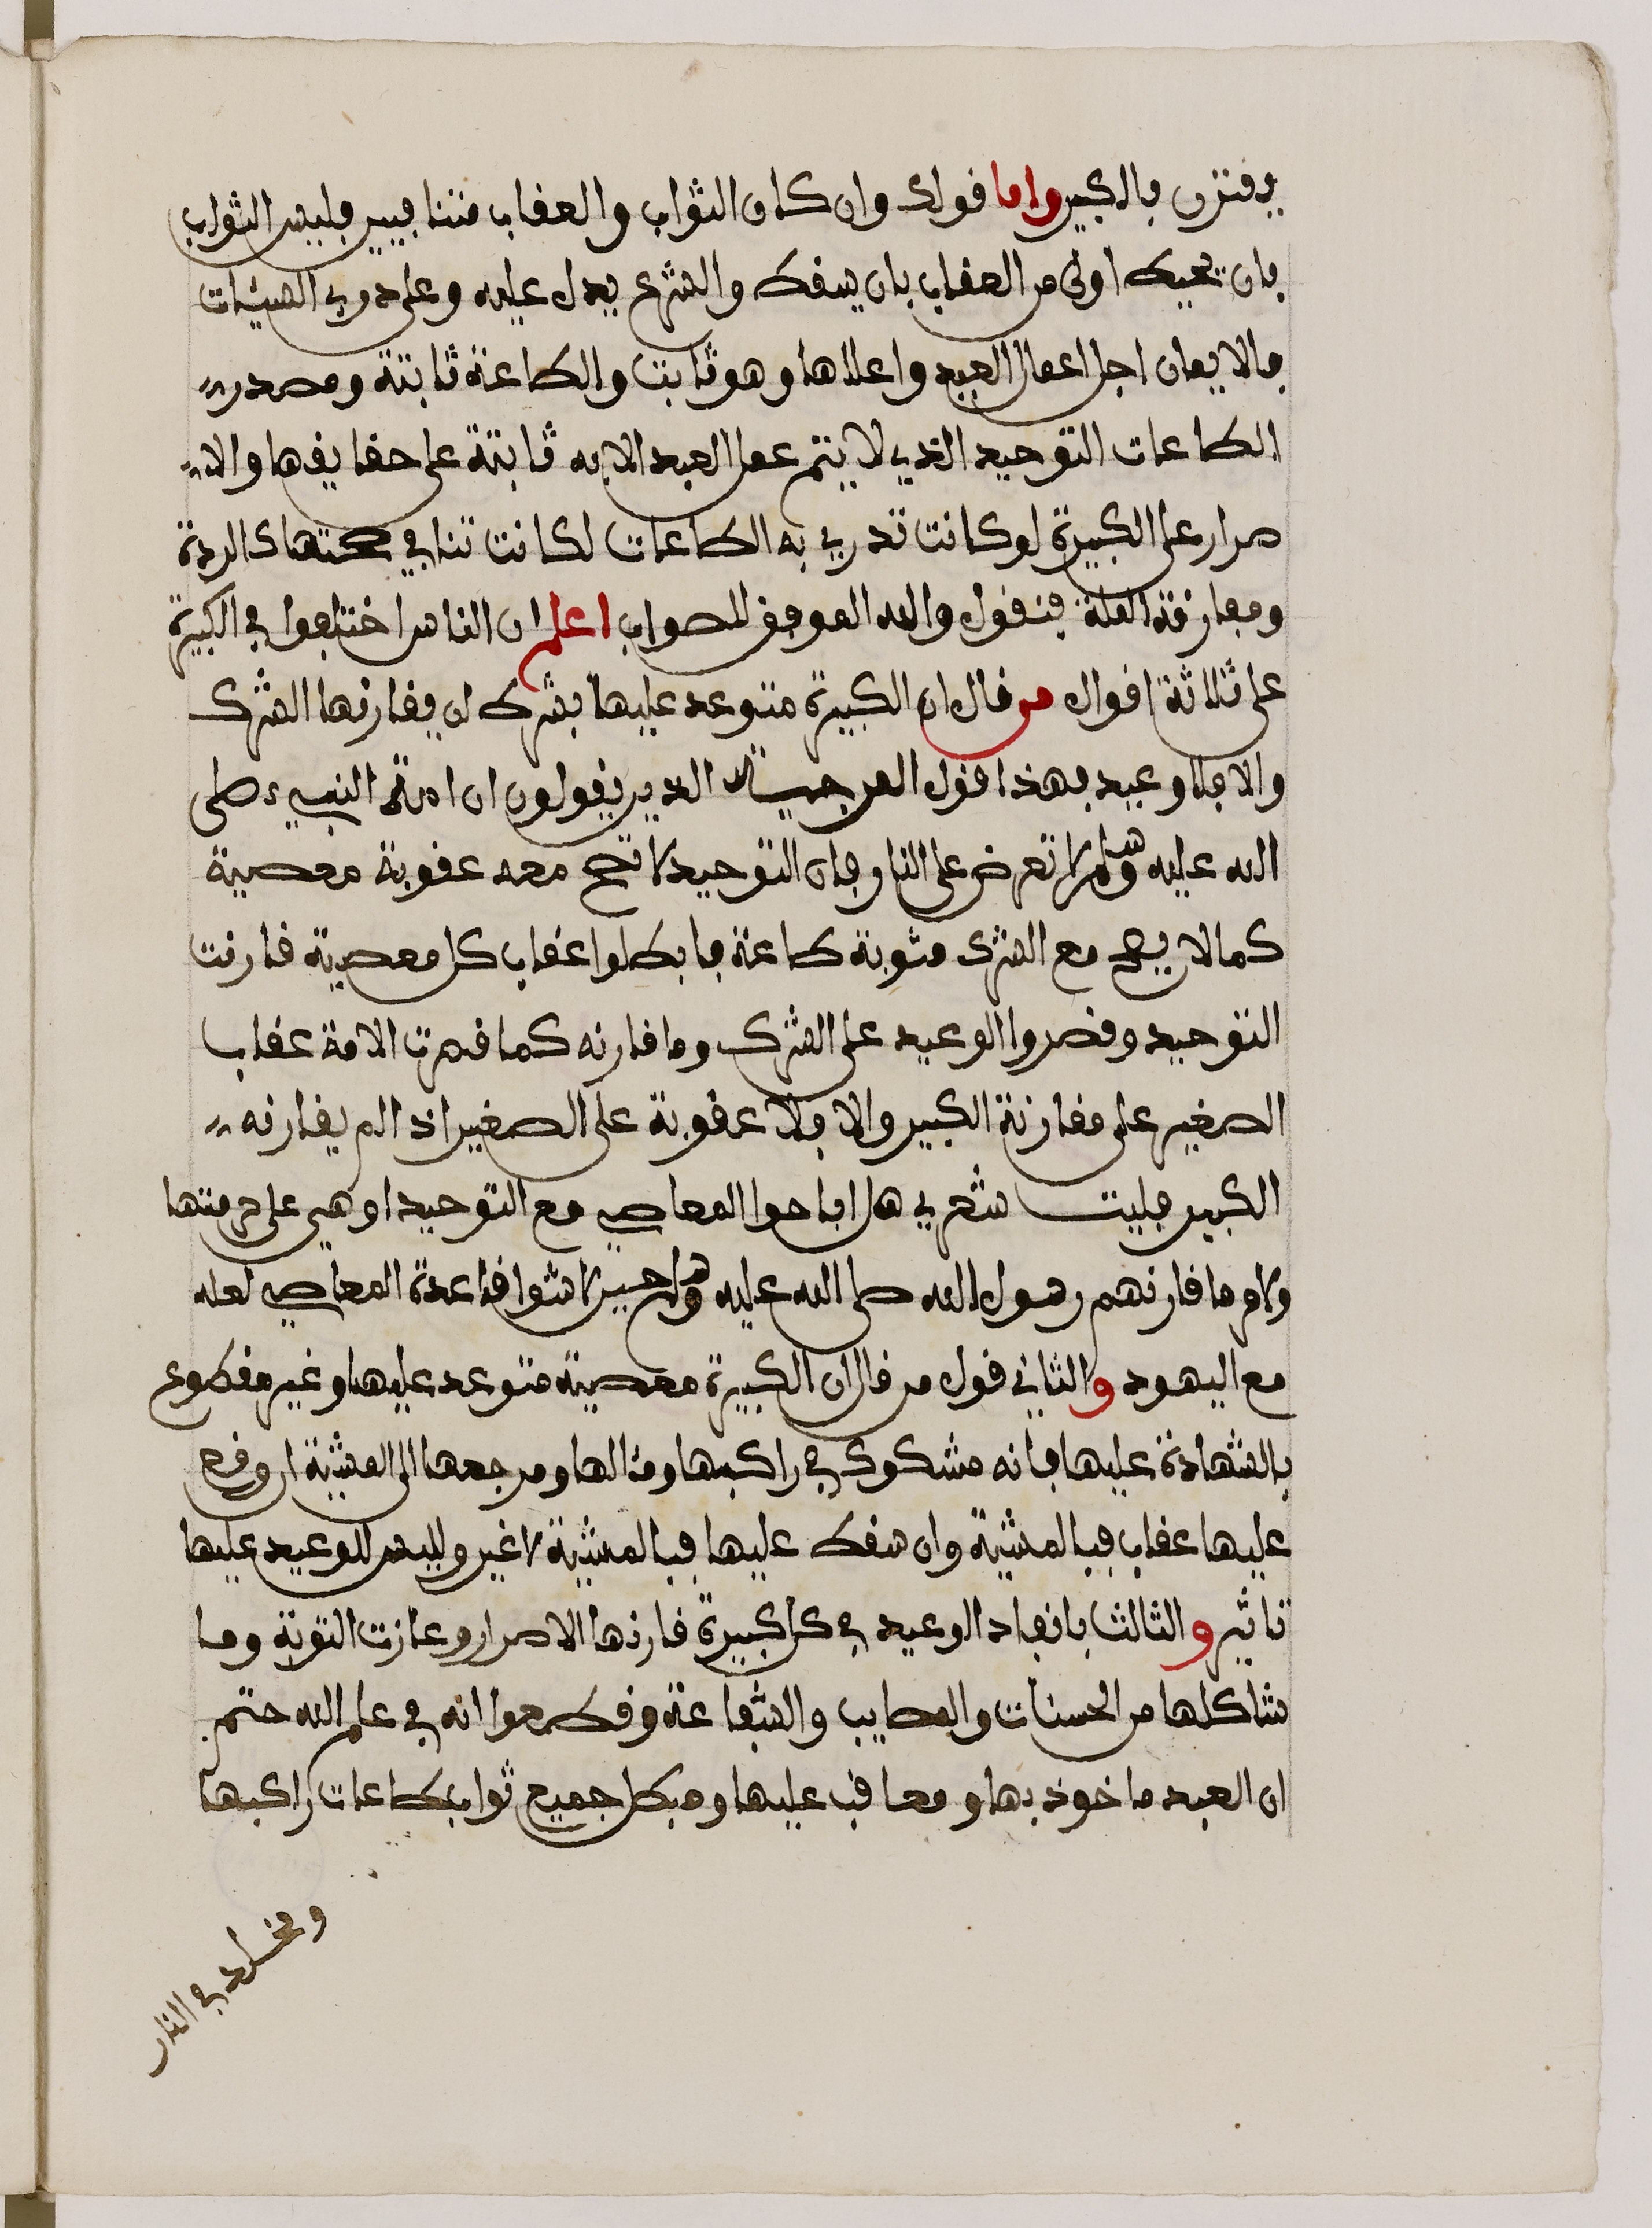 يقترن بالكبير واما قولك وان كان الثواب والعقاب متنافيين فليس الثواب
بان يحبط اولى من العقاب بان يسقط والشرع يدل عليه وعلى درء السيئات
فالايمان اجل اعمال العبد واعلاها وهو ثابت والطاعة ثابتة ومصدر
الطاعات التوحيد الذي لا يتم عمل العبد الا به ثابتة على حقايقها والا
صرار على الكبيرة لو كانت تدري به الطاعات لكانت تنافي صحتها كالردة
ومفارقة الملة فنقول والله الموفق للصواب اعلم ان الناس اختلفوا في الكبيرة
على ثلاثة اقوال من قال ان الكبيرة متوعد عليها بشرط ان يقارنها الشرك
والا فلا وعيد فهذا قول المرجية الذين يقولون ان امة النبيء صلى
الله عليه وسلم لا تعرض على النار فان التوحيد لا تصح معه عقوبة معصية
كما لا يصح مع الشرك مثوبة طاعة فابطلوا عقاب كل معصية قارنت
التوحيد وقصروا الوعيد على الشرك وما قارنه كما قصرت الامة عقاب
الصغير على مقارنة الكبير والا فلا عقوبة على الصغير اذا لم يقارنه
الكبير فليت شعري هل اباحوا المعاصي مع التوحيد او هي على حرمتها
ولامر ما قارنهم رسول الله صلى الله عليه وسلم حين لاشوا قاعدة المعاصي لعله
مع اليهود والثاني قول من قال ان الكبيرة معصية متوعد عليها وغير مقطوع
بالشهادة عليها فانه مشكوك في راكبها ومآلها ومرجعها الى المشية ان وقع
عليها عقاب فبالمشية وان سقط عليها فبالمشية لا غير وليس للوعيد عليها
تاثير والثالث بانفاد الوعيد في كل كبيرة قارنها الاصرار وعازت التوبة وما
شاكلها من الحسنات والمصايب والشفاعة وقطعوا انه في علم الله حتم
ان العبد ماخوذ بها ومعاقب عليها ومبطل جميع ثواب طاعات راكبها
ومخلد في النار